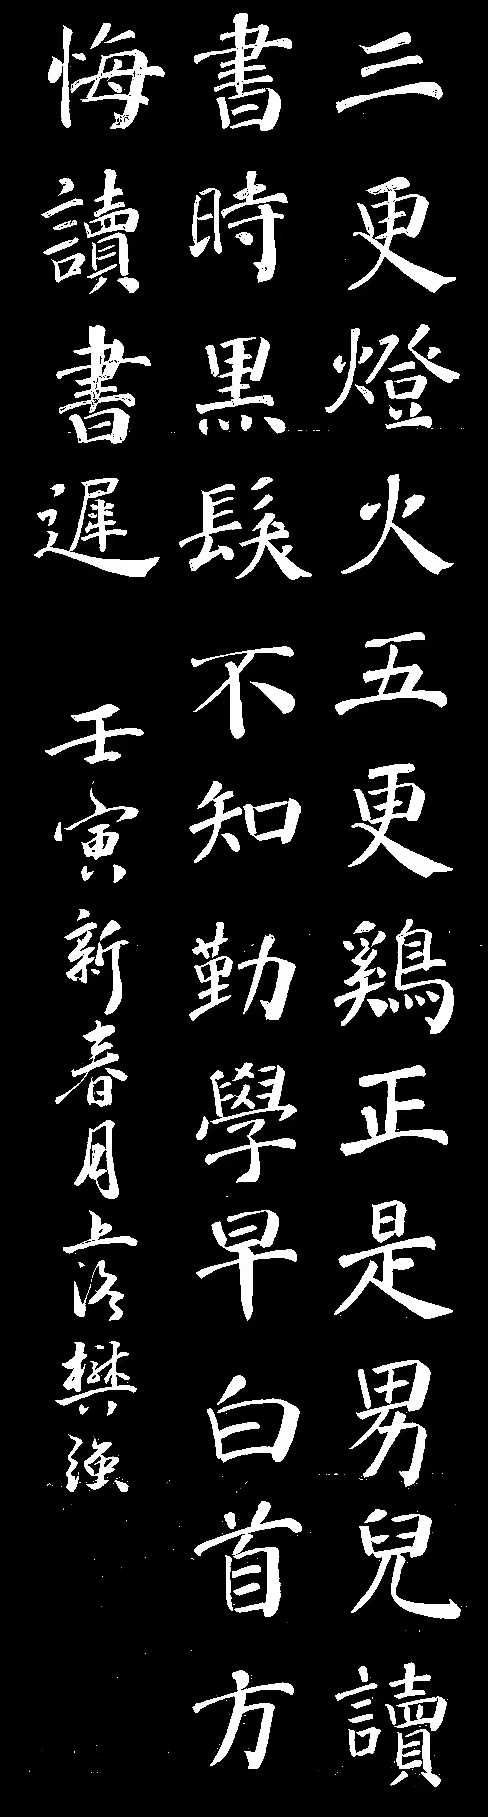 三更燈火五更鷄正是男兒讀
書時黑髮不知勤學早白首方
悔讀書遲
壬寅新春月上洛樊強